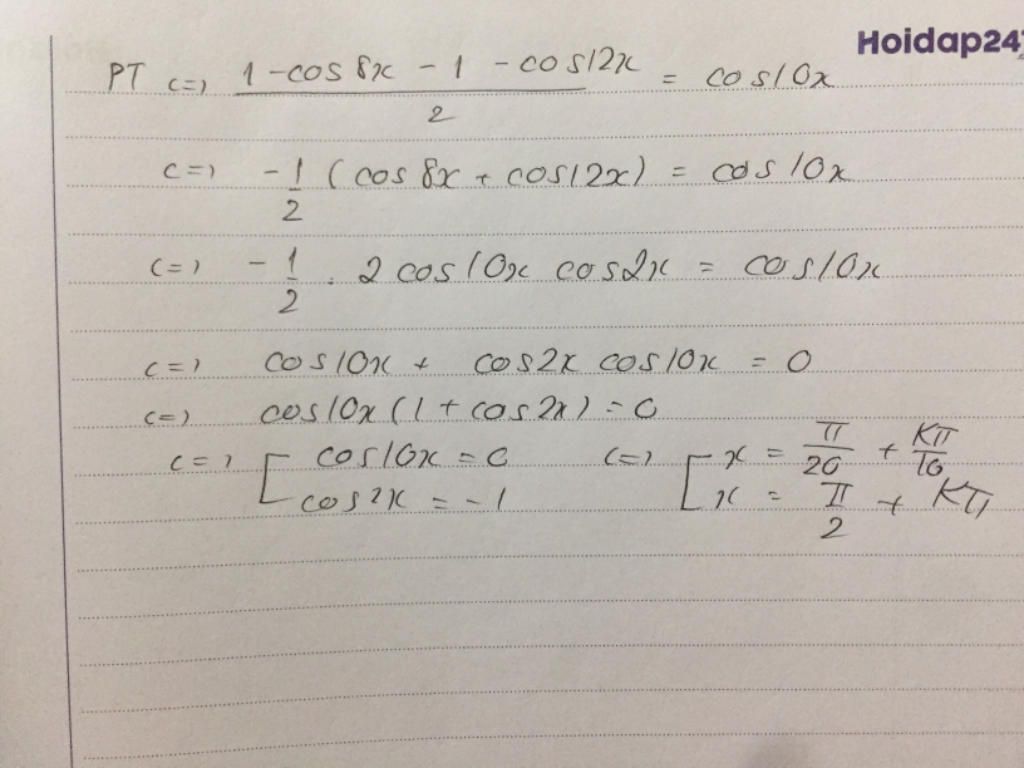 Hoidap247
PT <=> (1 - cos8x - 1 - cos12x)/2 = cos10x
<=> -1/2 (cos8x + cos12x) = cos10x
<=> -1/2 . 2cos10x cos2x = cos10x
<=> cos10x + cos2x cos10x = 0
<=> cos10x(1 + cos2x) = 0
<=> [ cos10x = 0 <=> [ x = π/20 + kπ/10
cos2x = -1 x = π/2 + kπ